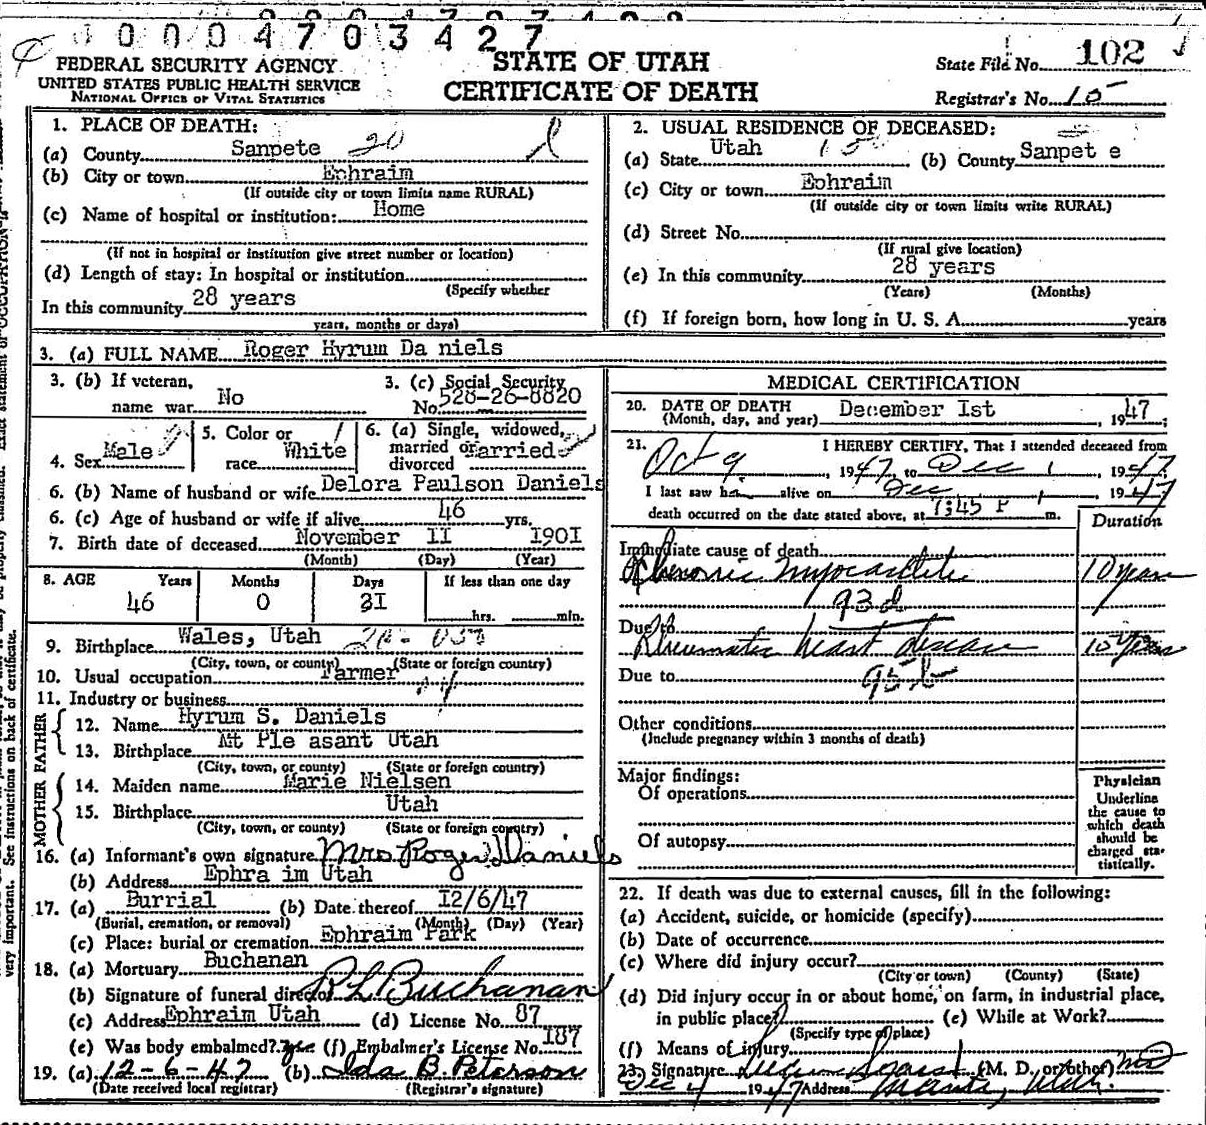 0 0 0 0 4 7 0 3 4 2 7
FEDERAL SECURITY AGENCY
UNITED STATES PUBLIC HEALTH SERVICE
NATIONAL OFFICE OF VITAL STATISTICS
STATE OF UTAH
CERTIFICATE OF DEATH
State File No. 102
Registrar's No. 15
1. PLACE OF DEATH:
(a) County Sanpete 20
(b) City or town Ephraim
(If outside city or town limits name RURAL)
(c) Name of hospital or institution: Home
(If not in hospital or institution give street number or location)
(d) Length of stay: In hospital or institution
(Specify whether
In this community 28 years
years, months or days)
2. USUAL RESIDENCE OF DECEASED:
(a) State Utah (b) County Sanpet e
(c) City or town Ephraim
(If outside city or town limits write RURAL)
(d) Street No.
(If rural give location)
(e) In this community 28 years
(Years) (Months)
(f) If foreign born, how long in U. S. A. years
3. (a) FULL NAME Roger Hyrum Da niels
3. (b) If veteran,
name war No
3. (c) Social Security
No. 528-26-8820
4. Sex Male
5. Color or
race White
6. (a) Single, widowed,
married or
divorced married
6. (b) Name of husband or wife Delora Paulson Daniels
6. (c) Age of husband or wife if alive 46 yrs.
7. Birth date of deceased November II I90I
(Month) (Day) (Year)
8. AGE Years Months Days If less than one day
46 0 2I hrs. min.
9. Birthplace Wales, Utah
(City, town, or county) (State or foreign country)
10. Usual occupation Farmer
11. Industry or business
FATHER
12. Name Hyrum S. Daniels
13. Birthplace Mt Ple asant Utah
(City, town, or county) (State or foreign country)
MOTHER
14. Maiden name Marie Nielsen
15. Birthplace Utah
(City, town, or county) (State or foreign country)
16. (a) Informant's own signature Mrs Roger Daniels
(b) Address Ephra im Utah
17. (a) Burrial (b) Date thereof I2/6/47
(Burial, cremation, or removal) (Month) (Day) (Year)
(c) Place: burial or cremation Ephraim Park
18. (a) Mortuary Buchanan
(b) Signature of funeral director R L Buchanan
(c) Address Ephraim Utah (d) License No. 87
(e) Was body embalmed? yes (f) Embalmer's License No. I87
19. (a) 12-6-47 (b) Ida B. Peterson
(Date received local registrar) (Registrar's signature)
MEDICAL CERTIFICATION
20. DATE OF DEATH
(Month, day, and year) December Ist, 1947;
21. I HEREBY CERTIFY, That I attended deceased from
Oct 9, 1947 to Dec 1, 1947
I last saw h alive on Dec 1, 1947
death occurred on the date stated above, at 7:45 P m.
Duration
Immediate cause of death
Chronic Myocarditis 10 years
93d
Due to
Rheumatic heart disease 10 years
Due to 95b
Other conditions
(Include pregnancy within 3 months of death)
Major findings:
Of operations
Of autopsy
Physician
Underline
the cause to
which death
should be
charged sta-
tistically.
22. If death was due to external causes, fill in the following:
(a) Accident, suicide, or homicide (specify)
(b) Date of occurrence
(c) Where did injury occur?
(City or town) (County) (State)
(d) Did injury occur in or about home, on farm, in industrial place,
in public place? (e) While at Work?
(Specify type of place)
(f) Means of injury
23. Signature (M. D. or other) MD
Dec 4 1947 Address Manti, Utah.
very important. See instructions on back of certificate.